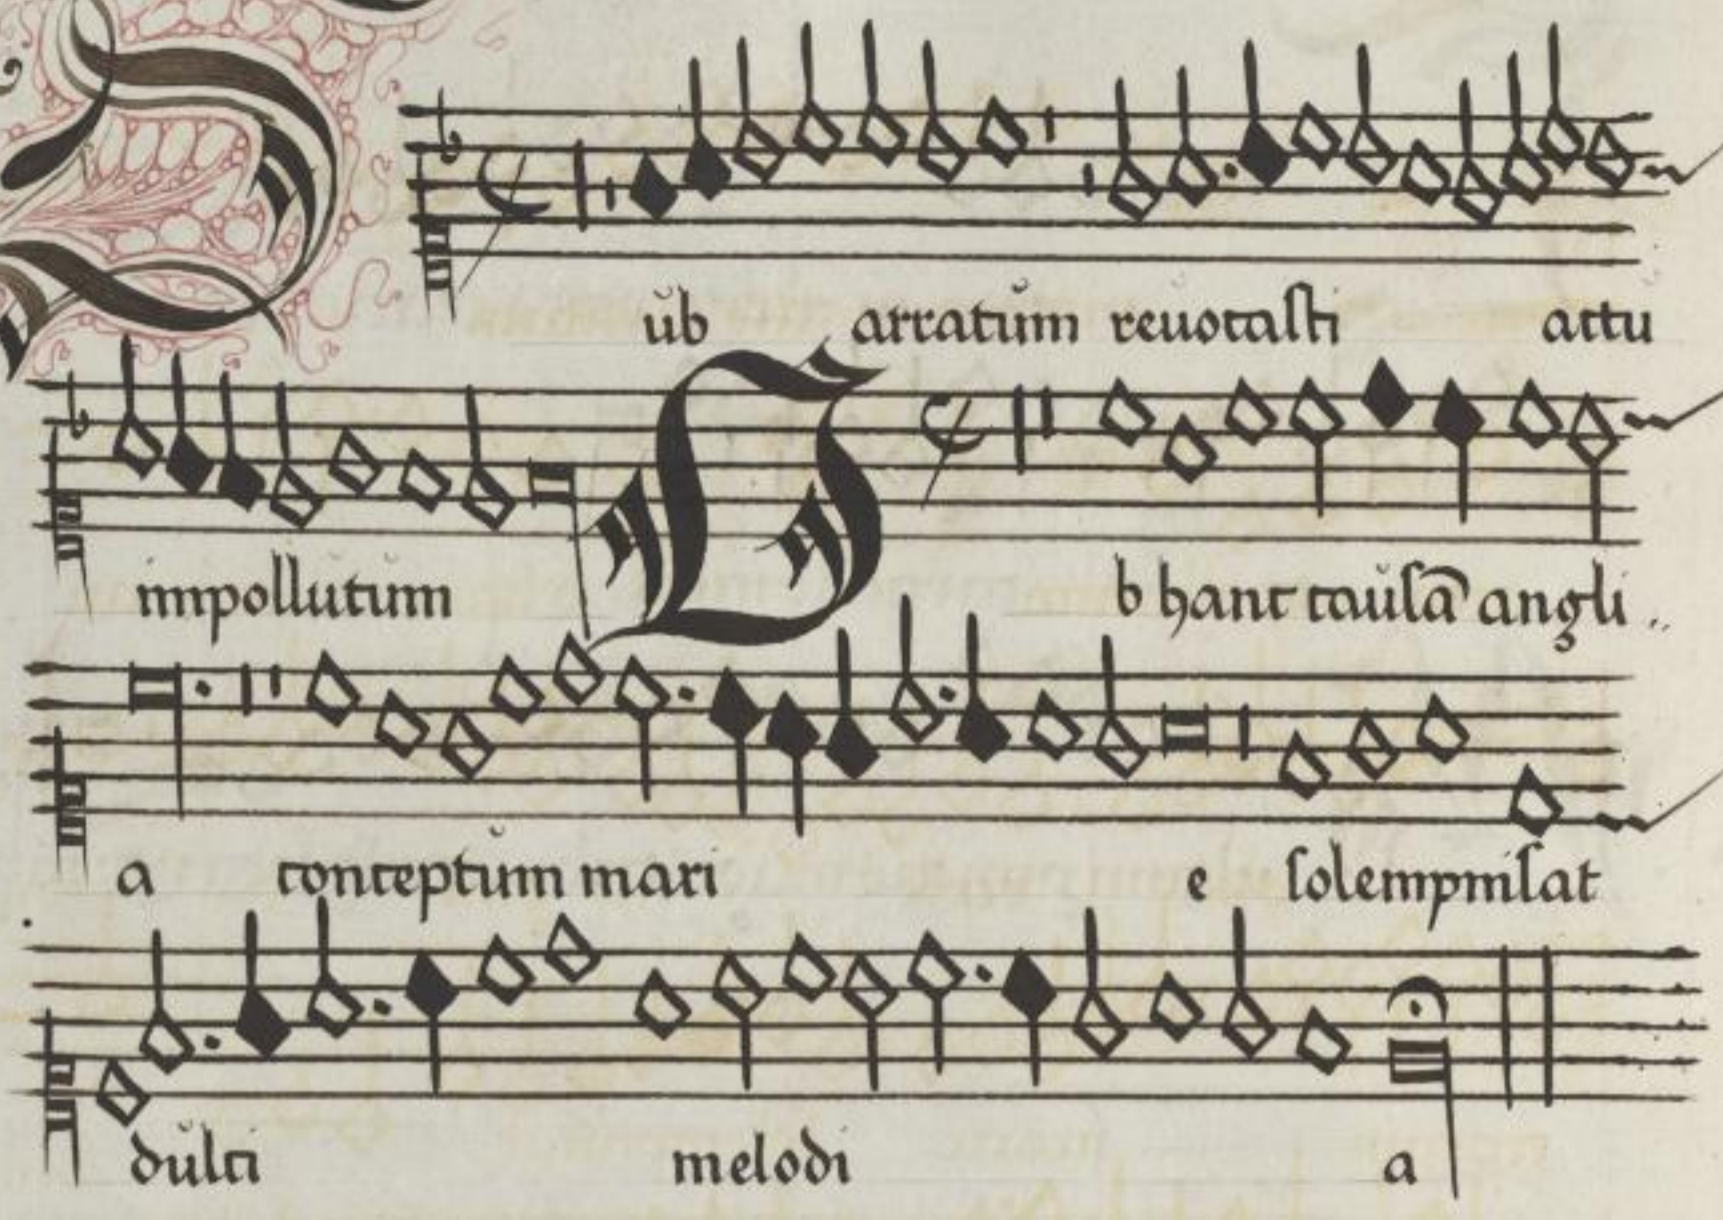 Sub arratum revocasti actu
impollutum Ob hanc causā angli
a conceptum mari e solempnisat
dulci melodi a